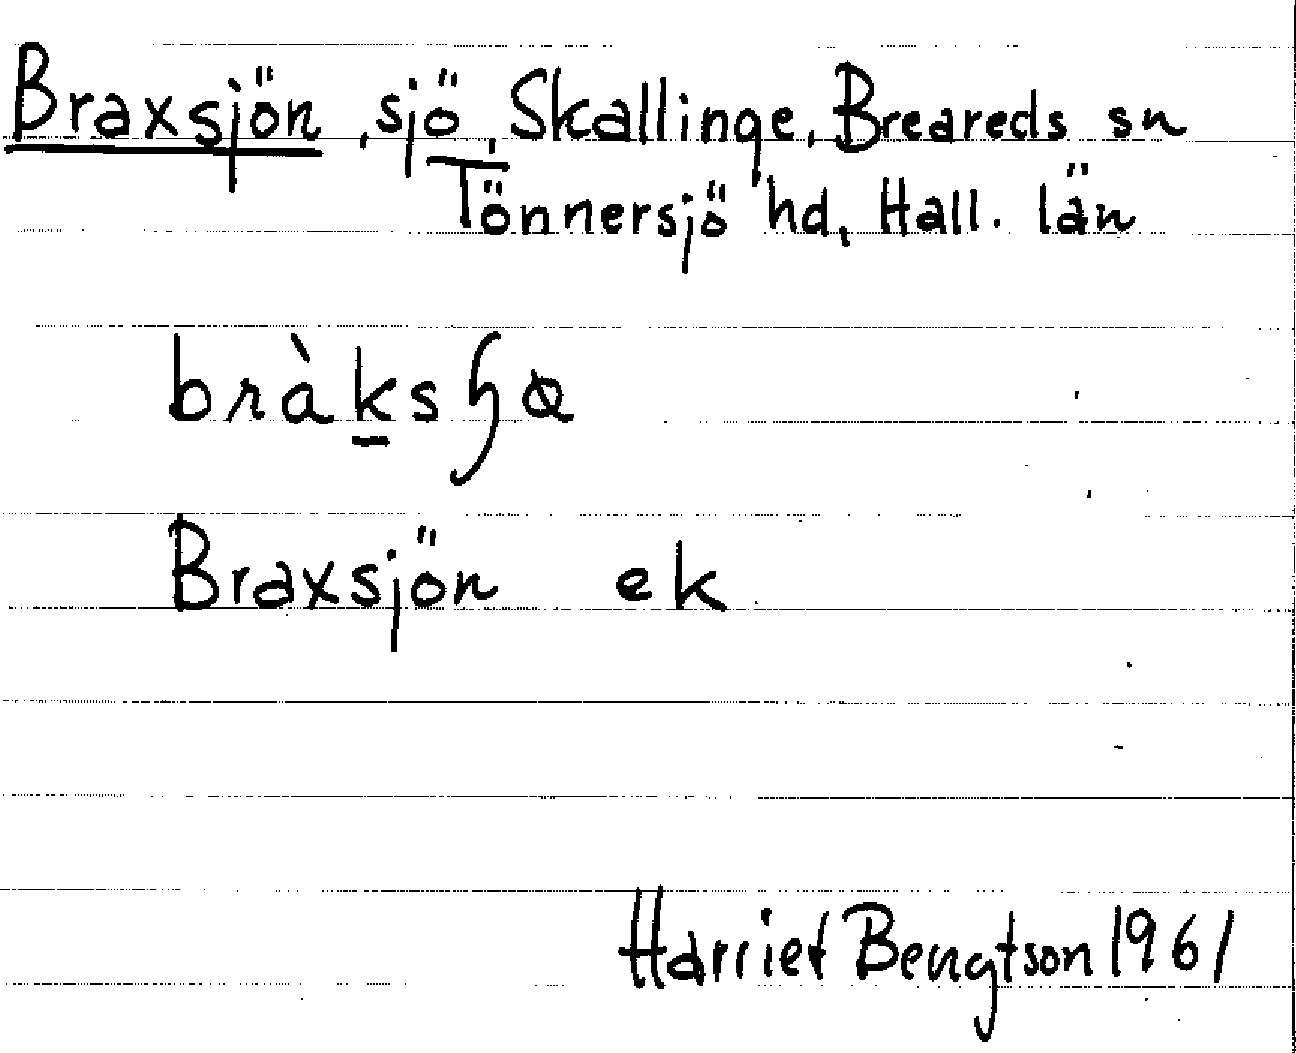 Braxsjön, sjö, Skallinge, Breareds sn
Tönnersjö hd, Hall. län
Braxsjön ek
Harriet Bengtson 1961